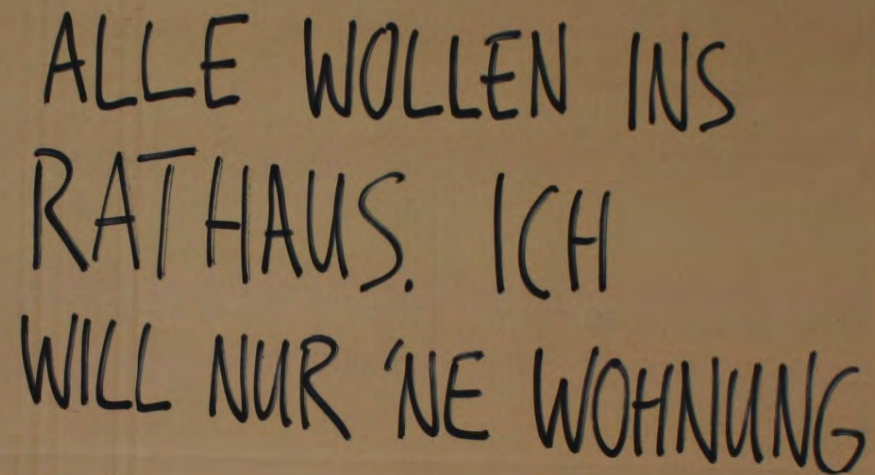 ALLE WOLLEN INS
RATHAUS. ICH
WILL NUR 'NE WOHNUNG